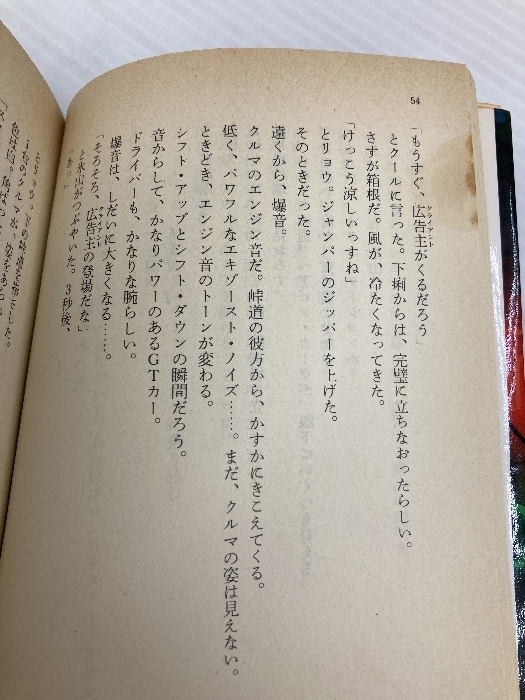 54
「もうすぐ、広告主がくるだろう」
クライアント
とクールに言った。下痢からは、完璧に立ちなおったらしい。
さすが箱根だ。風が、冷たくなってきた。
「けっこう涼しいっすね」
とリョウ。ジャンパーのジッパーを上げた。
そのときだった。
遠くから、爆音。
クルマのエンジン音だ。峠道の彼方から、かすかにきこえてくる。
低く、パワフルなエキゾースト・ノイズ……。まだ、クルマの姿は見えない。
ときどき、エンジン音のトーンが変わる。
シフト・アップとシフト・ダウンの瞬間だろう。
音からして、かなりパワーのあるGTカー。
ドライバーも、かなりな腕らしい。
爆音は、しだいに大きくなる……。
「そろそろ、広告主の登場だな」
クライアント
と氷山がつぶやいた。3秒後、
「あ。」